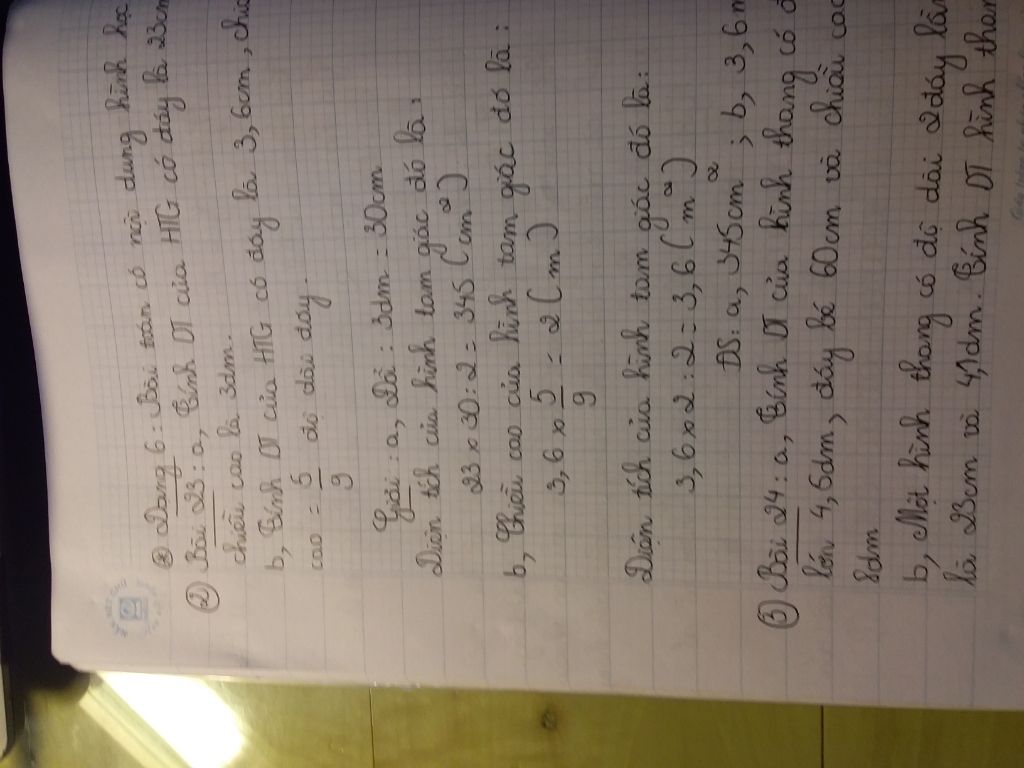 * Dạng 6: Bài toán có nội dung hình học
② Bài 23: a, Tính DT của HTG có đáy là 23cm
chiều cao là 3dm.
b, Tính DT của HTG có đáy là 3,6cm, chiều
cao = 5/9 độ dài đáy.
Giải: a, Đổi: 3dm = 30cm
Diện tích của hình tam giác đó là:
23 x 30 : 2 = 345 (cm²)
b, Chiều cao của hình tam giác đó là:
3,6 x 5/9 = 2 (m)
Diện tích của hình tam giác đó là:
3,6 x 2 : 2 = 3,6 (m²)
ĐS: a, 345cm² ; b, 3,6m
③ Bài 24: a, Tính DT của hình thang có đ
lớn 4,6dm, đáy bé 60cm và chiều cao
8dm
b, Một hình thang có độ dài 2 đáy lần
là 23cm và 4,1dm. Tính DT hình thang